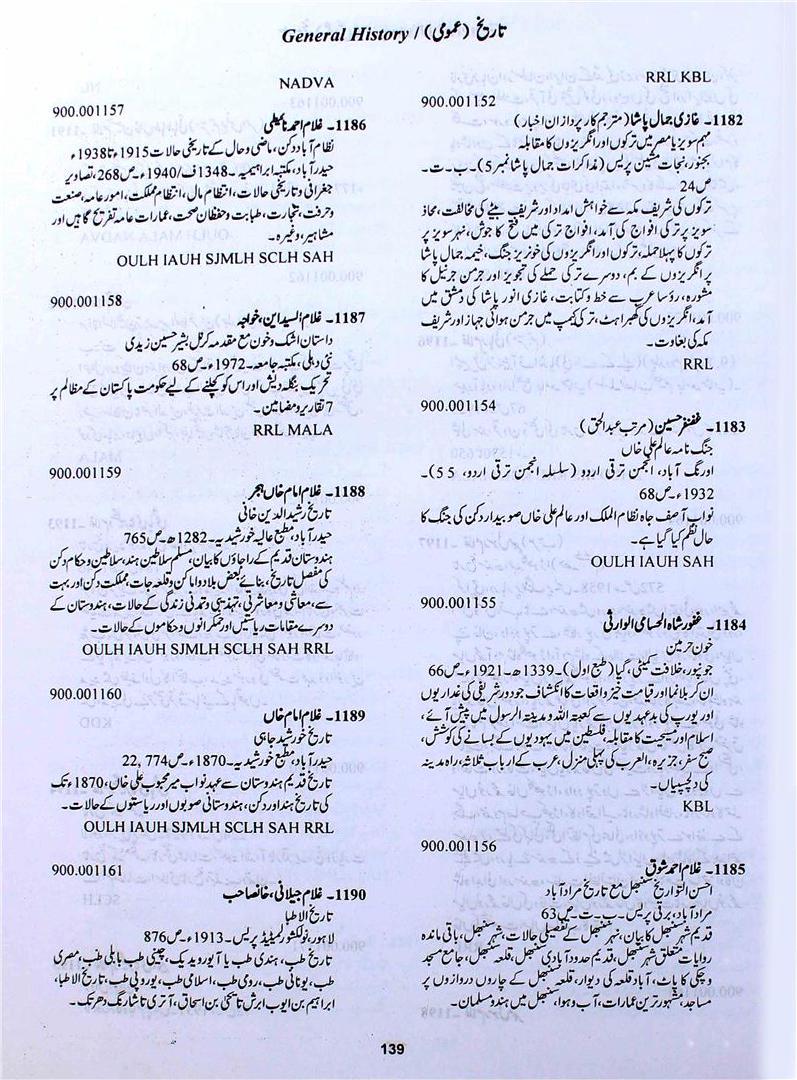 General History / تاریخ (عمومی)
RRL KBL
900.001152
1182۔ غازی جمال پاشا (مترجم کار پردازان اخبار)
مہم سویز یا مصر میں ترکوں اور انگریزوں کا مقابلہ
بجنور، نجات مشین پریس (مذاکرات جمال پاشا نمبر 5)۔ ب۔ت۔
ص24
ترکوں کی شریف مکہ سے خواہش امداد اور شریف بیٹے کی مخالفت، محاذ
سویز پر ترکی افواج کی آمد، افواج ترکی میں فتح کا جوش، نہر سویز پر
ترکوں کا پہلا حملہ، ترکوں اور انگریزوں کی خونریز جنگ، خیمہ جمال پاشا
پر انگریزوں کے بم، دوسرے ترکی حملے کی تجویز اور جرمن جرنیل کا
مشورہ، رؤسا عرب سے خط و کتابت، غازی انور پاشا کی دمشق میں
آمد، انگریزوں کی گھبراہٹ، ترکی کیمپ میں جرمن ہوائی جہاز اور شریف
مکہ کی بغاوت۔
RRL
900.001154
1183۔ غضنفر حسین (مرتب عبدالحق)
جنگ نامہ عالم علی خاں
اورنگ آباد، انجمن ترقی اردو (سلسلہ انجمن ترقی اردو، 55)۔
1932ء۔ ص68
نواب آصف جاہ نظام الملک اور عالم علی خاں صوبیدار دکن کی جنگ کا
حال نظم کیا گیا ہے۔
OULH IAUH SAH
900.001155
1184۔ غفور شاہ الحسامی الوارثی
خون حرمین
جونپور، خلافت کمیٹی، گیا (طبع اول)۔ 1339ھ۔ 1921ء۔ ص66
ان کربلا نما اور قیامت خیز واقعات کا انکشاف جو دور شریفی کی غداریوں
اور یورپ کی بدعہدیوں سے کعبۃ اللہ و مدینۃ الرسول میں پیش آئے،
اسلام اور مسیحیت کا مقابلہ، فلسطین میں یہودیوں کے بسانے کی کوشش،
صبح سفر، جزیرہ، العرب کی پہلی منزل، عرب کے ارباب ثلاثہ، راہ مدینہ
کی دلچسپیاں۔
KBL
900.001156
1185۔ غلام احمد شوق
احسن التواریخ سنبھل مع تاریخ مراد آباد
مراد آباد، برقی پریس۔ ب۔ت۔ ص63
قدیم شہر سنبھل کا بیان، نہر سنبھل کے تفصیلی حالات، شہر سنبھل، باقی ماندہ
روایات متعلق شہر سنبھل، قدیم حدود آبادی سنبھل، قلعہ سنبھل، جامع مسجد
و چکی کا پاٹ، آباد قلعہ کی دیوار، قلعہ سنبھل کے چاروں دروازوں پر
مساجد، مشہور ترین عمارات، آب و ہوا، سنبھل میں ہندو مسلمان۔
NADVA
900.001157
1186۔ غلام احمد نائطی
نظام آباد دکن، ماضی و حال کے تاریخی حالات 1915ء تا 1938ء
حیدرآباد، مکتبہ ابراہیمیہ۔ 1348ف/1940ء۔ ص268، تصاویر
جغرافی و تاریخی حالات، انتظام مال، انتظام مملکت، امور عامہ، صنعت
و حرفت، تجارت، طبابت و حفظان صحت، عمارات عامہ تفریح گاہیں اور
مشاہیر، وغیرہ۔
OULH IAUH SJMLH SCLH SAH
900.001158
1187۔ غلام السیدین، خواجہ
داستان اشک و خون مع مقدمہ کرنل بشیر حسین زیدی
نئی دہلی، مکتبہ جامعہ۔ 1972ء۔ ص68
تحریک بنگلہ دیش اور اس کو کچلنے کے لیے حکومت پاکستان کے مظالم پر
7 تقاریر و مضامین۔
RRL MALA
900.001159
1188۔ غلام امام خاں ہجر
تاریخ رشید الدین خانی
حیدرآباد، مطبع عالیہ خورشیدیہ۔ 1282ھ۔ ص765
ہندوستان قدیم کے راجاؤں کا بیان، مسلم سلاطین ہند، سلاطین و حکام دکن
کی مفصل تاریخ، بنائے بعض بلاد و اماکن و قلعہ جات، مملکت دکن اور بہت
سے، معاشی و معاشرتی، تہذیبی و تمدنی زندگی کے حالات، ہندوستان کے
دوسرے مقامات ریاستیں اور حکمرانوں و حاکموں کے حالات۔
OULH IAUH SJMLH SCLH SAH RRL
900.001160
1189۔ غلام امام خاں
تاریخ خورشید جاہی
حیدرآباد، مطبع خورشیدیہ۔ 1870ء۔ ص774, 22
تاریخ قدیم ہندوستان سے عہد نواب میر محبوب علی خاں، 1870ء تک
کی تاریخ ہند اور دکن، ہندوستانی صوبوں اور ریاستوں کے حالات۔
OULH IAUH SJMLH SCLH SAH RRL
900.001161
1190۔ غلام جیلانی، خانصاحب
تاریخ الاطبا
لاہور، نولکشور لمیٹیڈ پریس۔ 1913ء۔ ص876
تاریخ طب، ہندی طب یا آیورویدیک، چینی طب بابلی طب، مصری
طب، یونانی طب، رومی طب، اسلامی طب، یوروپی طب، تاریخ الاطبا،
ابراہیم بن ایوب ابرش تا یحییٰ بن اسحاق، آتری تا شارنگ دھر تک۔
139